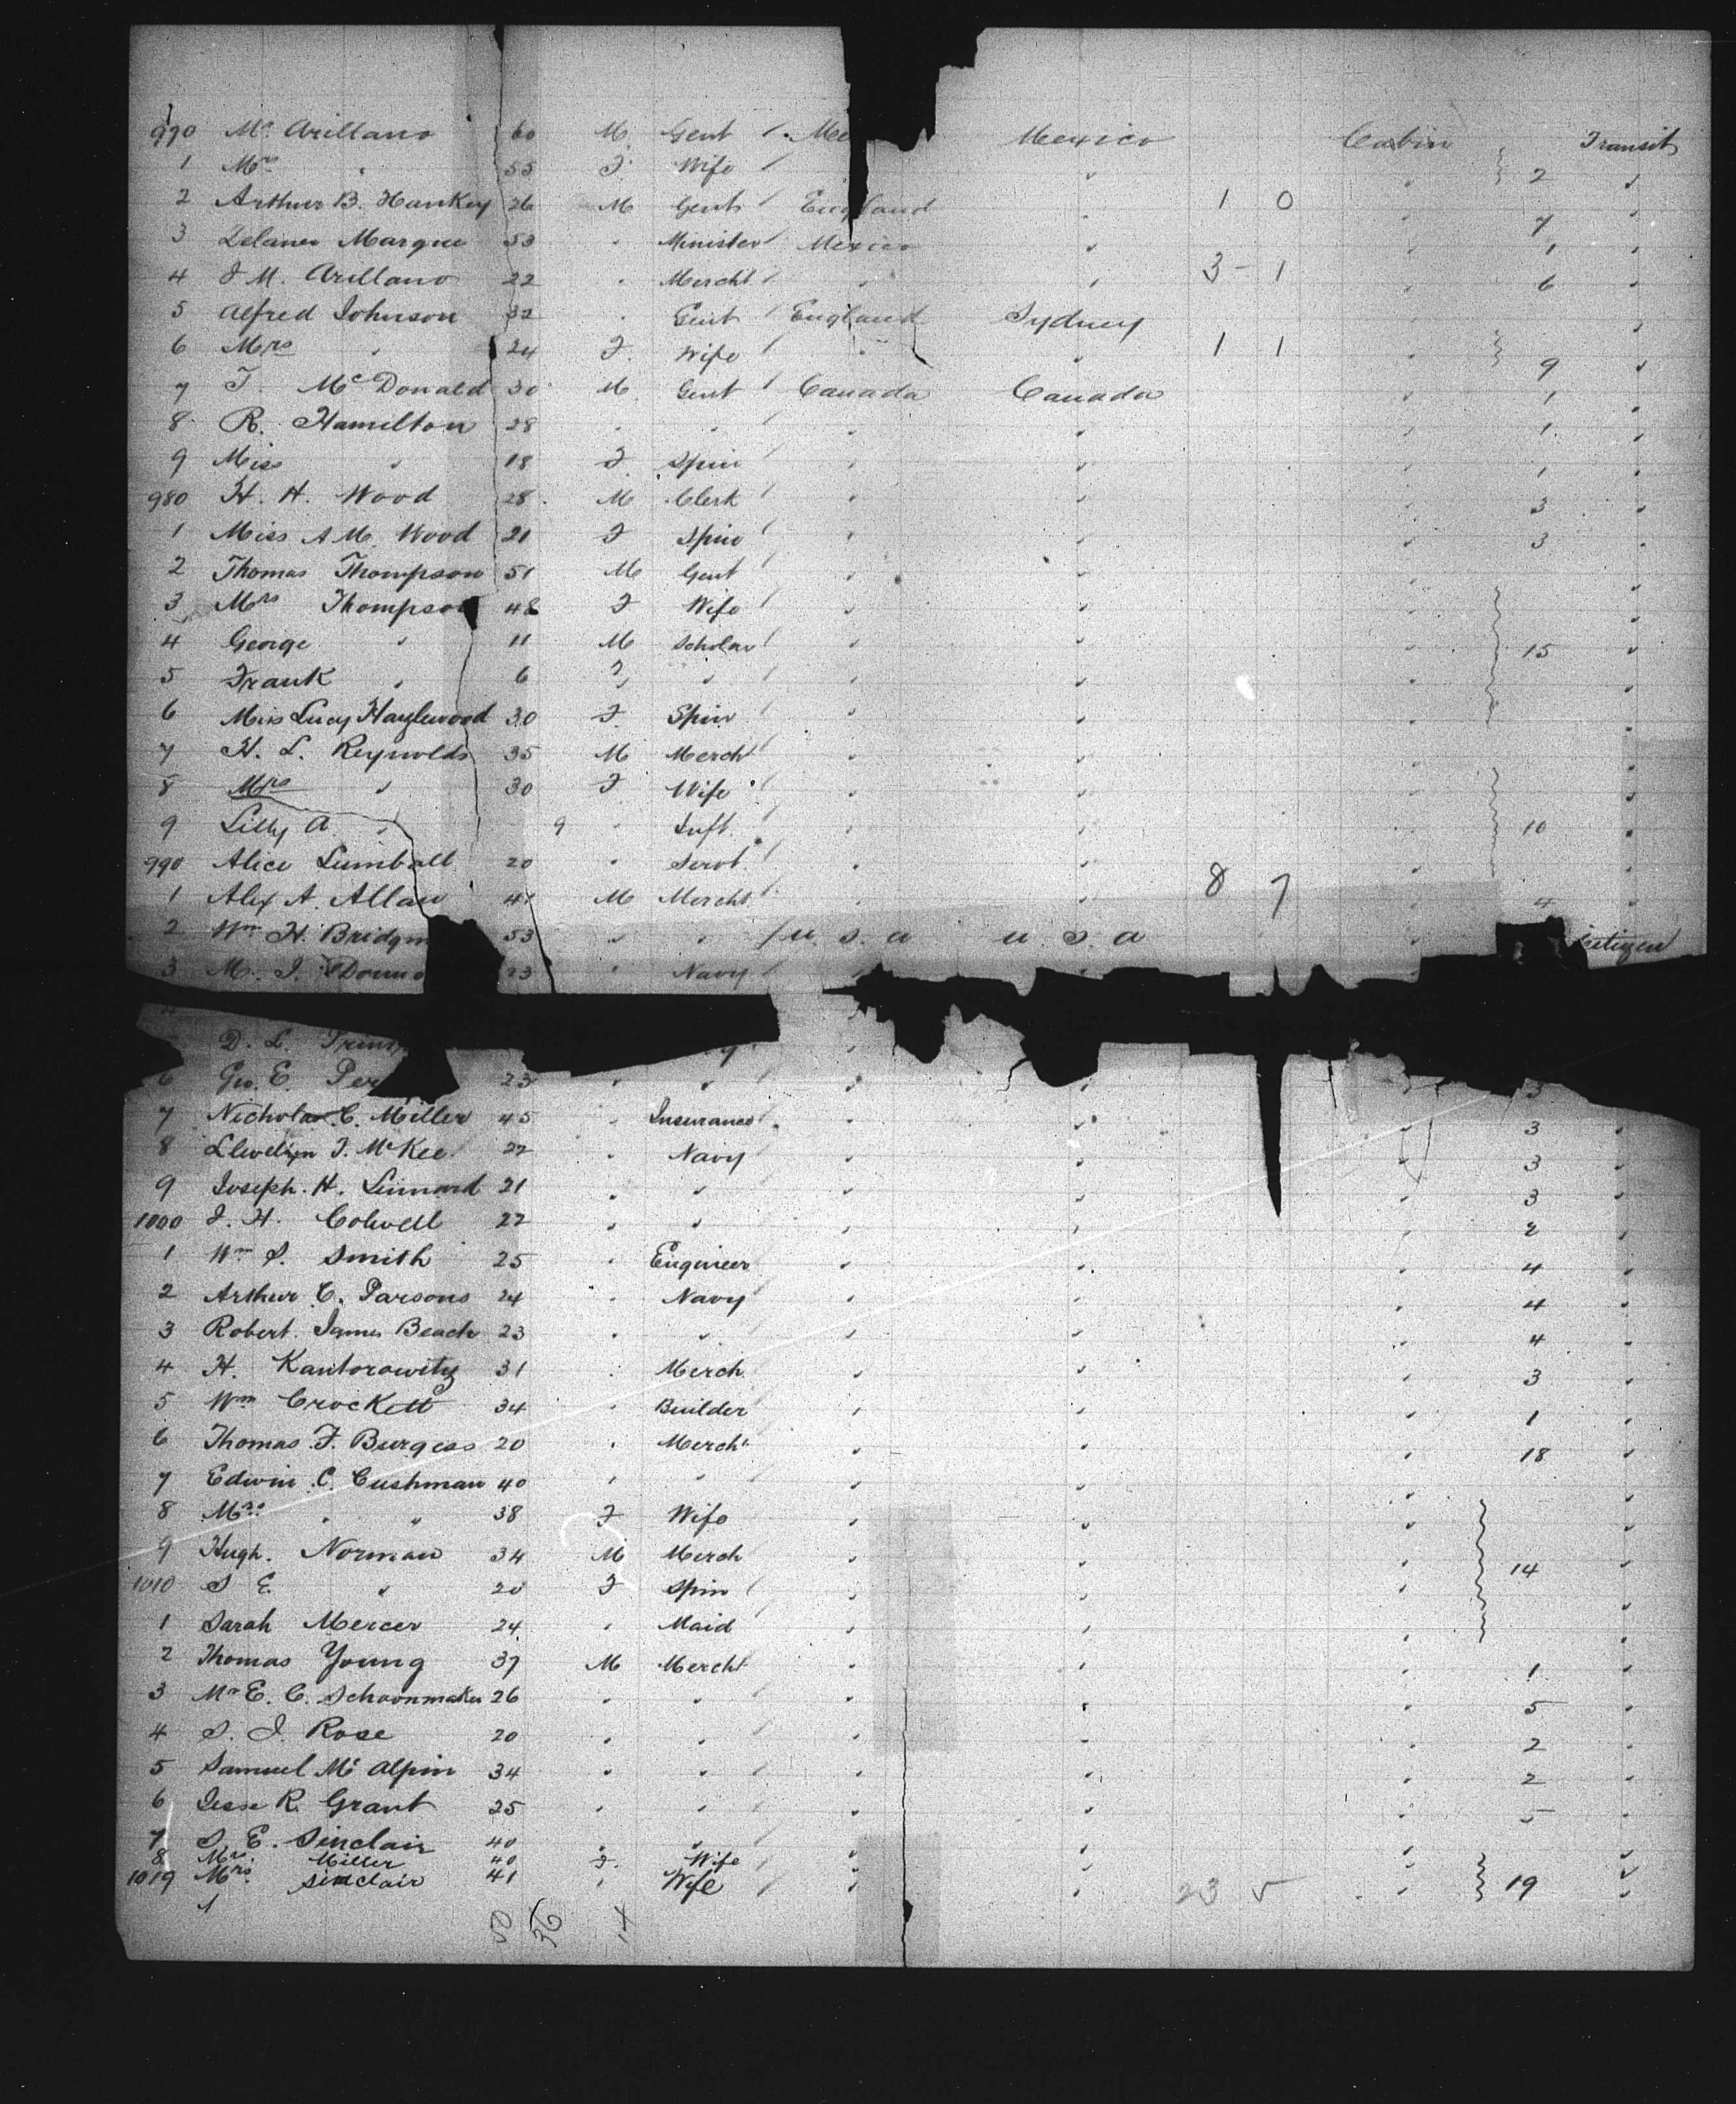 970 Mr Arillano 60 M Gent Me Mexico Cabin Transit
1 Mrs " 55 F Wife " " 2 "
2 Arthur B. Hankey 26 M Gent England " 1 0 " 7 "
3 Marque 53 " Minister Mexico " " 1 "
4 J M. Arillano 22 " Mercht " " 3 - 1 " 6 "
5 Alfred Johnson 32 " Gent England Sydney "
6 Mrs " 24 F Wife " " 1 1 " 9 "
7 T. McDonald 30 M Gent Canada Canada " 1 "
8 R. Hamilton 28 " " " " " 1 "
9 Miss " 18 F Spin " " " 1 "
980 H. H. Wood 28 M Clerk " " " 3 "
1 Miss A M. Wood 21 F Spin " " " 3 "
2 Thomas Thompson 51 M Gent " " "
3 Mrs Thompson 48 F Wife " " " "
4 George " 11 M Scholar " " " 15 "
5 Frank " 6 " " " " " "
6 Miss Lucy Hazlewood 30 F Spin " " " "
7 H. L. Reynolds 35 M Merch " " " "
8 Mrs " 30 F Wife " " " "
9 Lilly A " 9 " Inft. " " " 10 "
990 Alice 20 " Servt " " " "
1 Alex A. Allan 41 M Mercht " " 8 7 " 4 "
2 Wm H. Bridgm 53 " " U. S. A U. S. A " citizen
3 M. J. 23 " Navy " "
D. L.
6 Geo. E. Per 23 " " " " " 3
7 Nicholas C. Miller 45 " Insurance " " " 3 "
8 Llewelyn T. McKee 22 " Navy " " " 3 "
9 Joseph. H. Linnard 21 " " " " " 3 "
1000 J. H. Colwell 22 " " " " " 2 "
1 Wm S. Smith 25 " Engineer " " " 4 "
2 Arthur C. Parsons 24 " Navy " " " 4 "
3 Robert. James Beach 23 " " " " " 4 "
4 H. Kantorowitz 31 " Merch " " " 3 "
5 Wm Crockett 34 " Builder " " " 1 "
6 Thomas. F. Burgess 20 " Mercht " " " 18 "
7 Edwin C. Cushman 40 " " " " " "
8 Mrs " " 38 F Wife " " " "
9 Hugh. Norman 34 M Merch " " " 14 "
1010 S E. " 20 F Spin " " " "
1 Sarah Mercer 24 " Maid " " " "
2 Thomas Young 37 M Mercht " " " 1 "
3 Mr E. C. Schoonmaker 26 " " " " " 5 "
4 S. J. Rose 20 " " " " " 2 "
5 Samuel Mc Alpin 34 " " " " " 2 "
6 Jesse R. Grant 25 " " " " " 5 "
7 S. E. Sinclair 40 " " " " " "
8 Mrs. Miller 40 F. Wife " " " "
1019 Mrs. Sinclair 41 " Wife " " 23 5 " 19 "
50 36 14